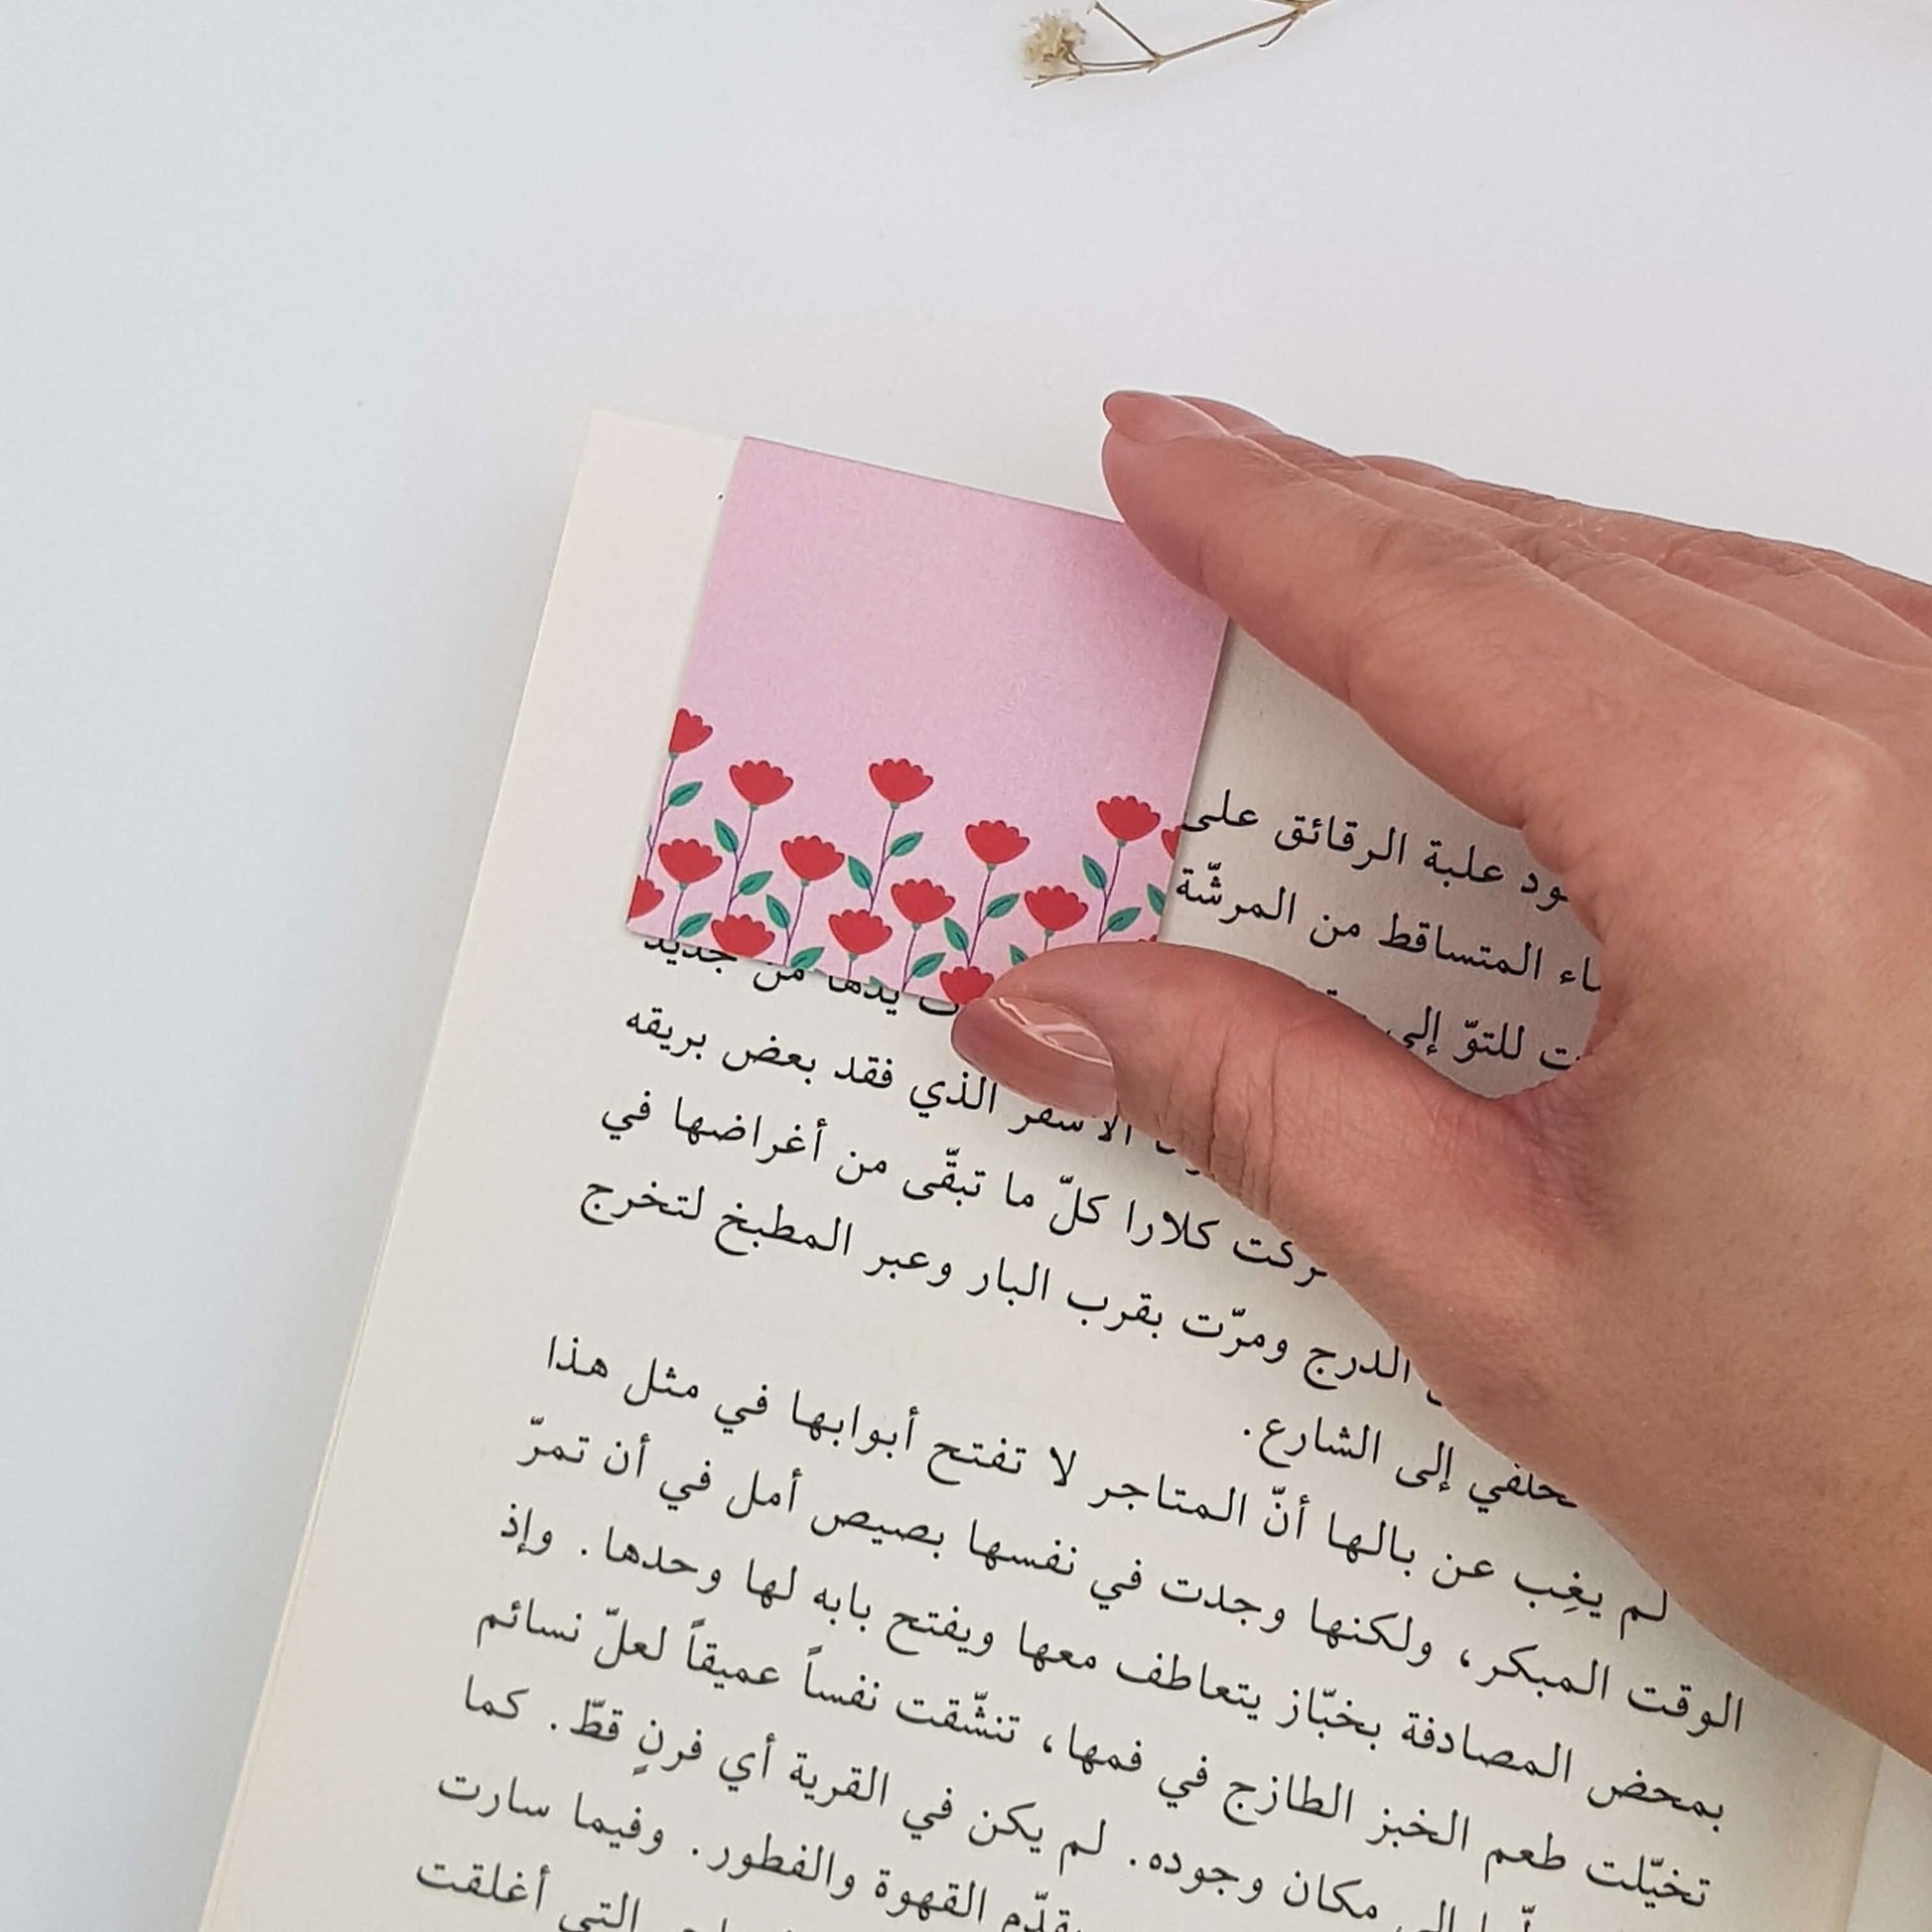 علبة الرقائق على
المتساقط من المرشّة
للتوّ إلى
يدها من جديد
الذي فقد بعض بريقه
كلارا كلّ ما تبقّى من أغراضها في
الدرج ومرّت بقرب البار وعبر المطبخ لتخرج
إلى الشارع.
لم يغِب عن بالها أنّ المتاجر لا تفتح أبوابها في مثل هذا
الوقت المبكر، ولكنها وجدت في نفسها بصيص أمل في أن تمرّ
بمحض المصادفة بخبّاز يتعاطف معها ويفتح بابه لها وحدها. وإذ
تخيّلت طعم الخبز الطازج في فمها، تنشّقت نفساً عميقاً لعلّ نسائم
مكان وجوده. لم يكن في القرية أي فرنٍ قطّ. كما
يقدّم القهوة والفطور. وفيما سارت
التي أغلقت